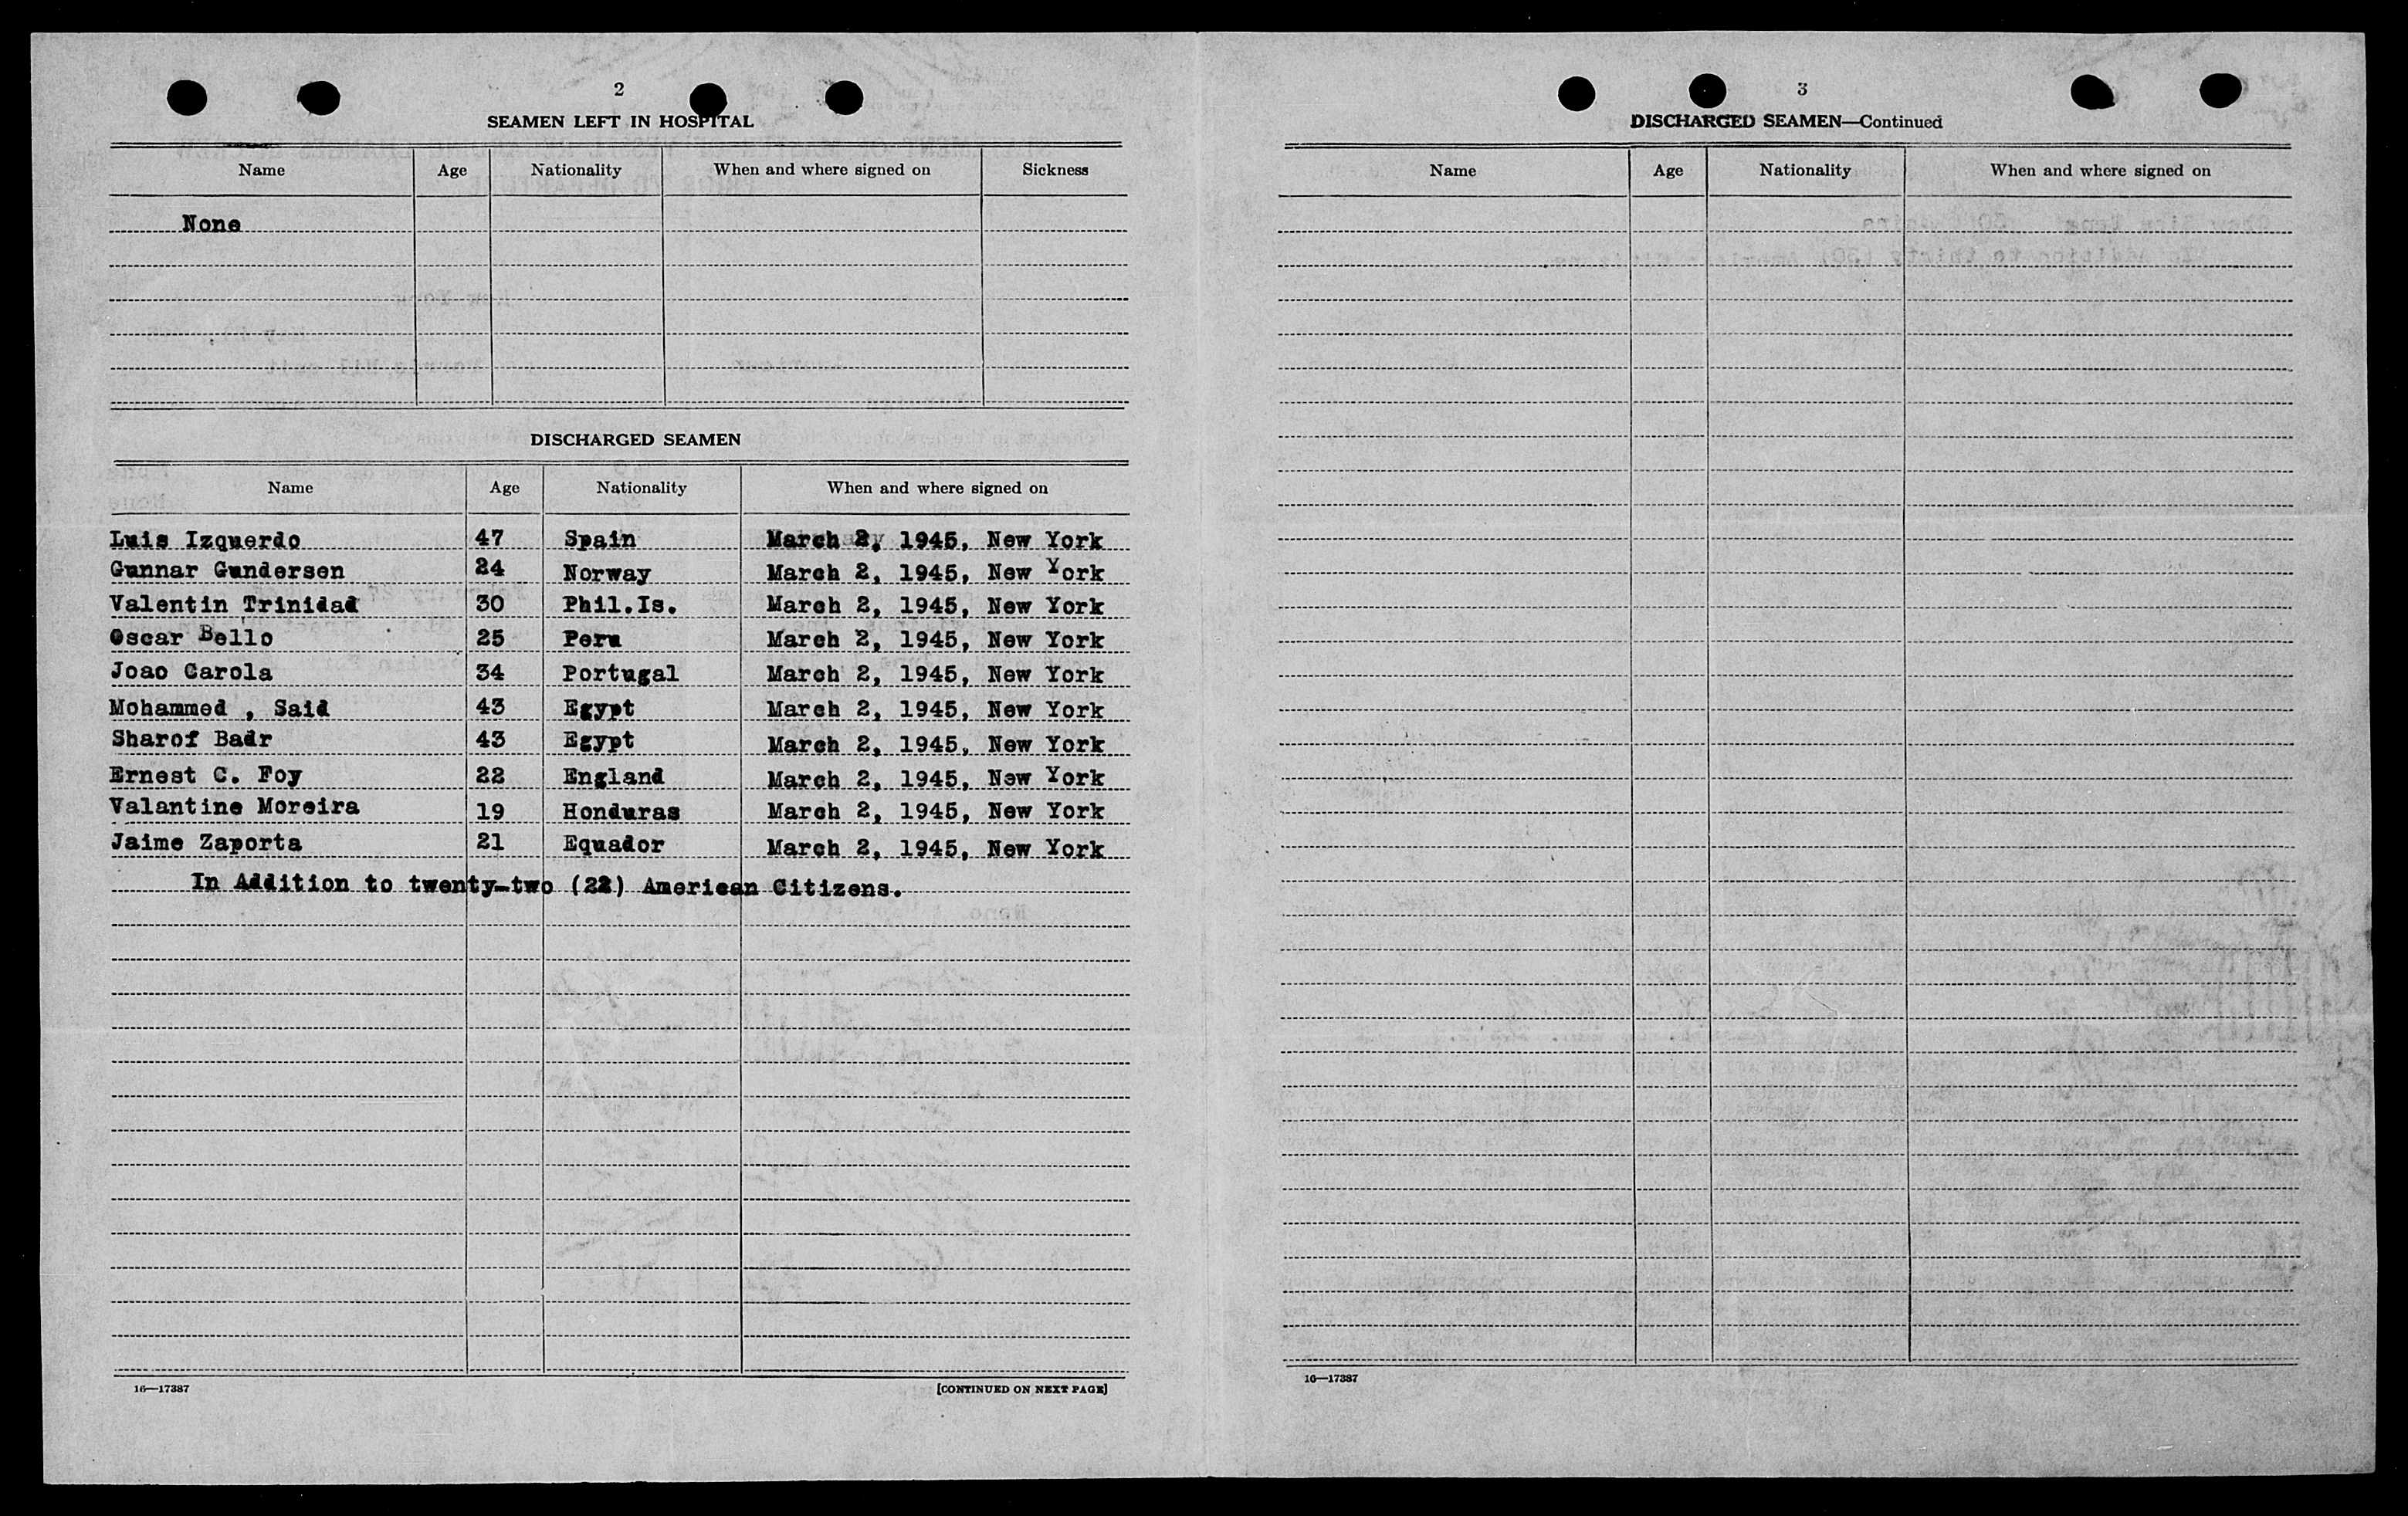 2
SEAMEN LEFT IN HOSPITAL
Name Age Nationality When and where signed on Sickness
None
DISCHARGED SEAMEN
Name Age Nationality When and where signed on
Luis Izquerdo 47 Spain March 2, 1945, New York
Gunnar Gundersen 24 Norway March 2, 1945, New York
Valentin Trinidad 30 Phil.Is. March 2, 1945, New York
Oscar Bello 25 Peru March 2, 1945, New York
Joao Carola 34 Portugal March 2, 1945, New York
Mohammed , Said 43 Egypt March 2, 1945, New York
Sharof Badr 43 Egypt March 2, 1945, New York
Ernest C. Foy 22 England March 2, 1945, New York
Valantine Moreira 19 Honduras March 2, 1945, New York
Jaime Zaporta 21 Equador March 2, 1945, New York
In Addition to twenty-two (22) American Citizens.
16—17387 [CONTINUED ON NEXT PAGE]
3
DISCHARGED SEAMEN—Continued
Name Age Nationality When and where signed on
16—17387